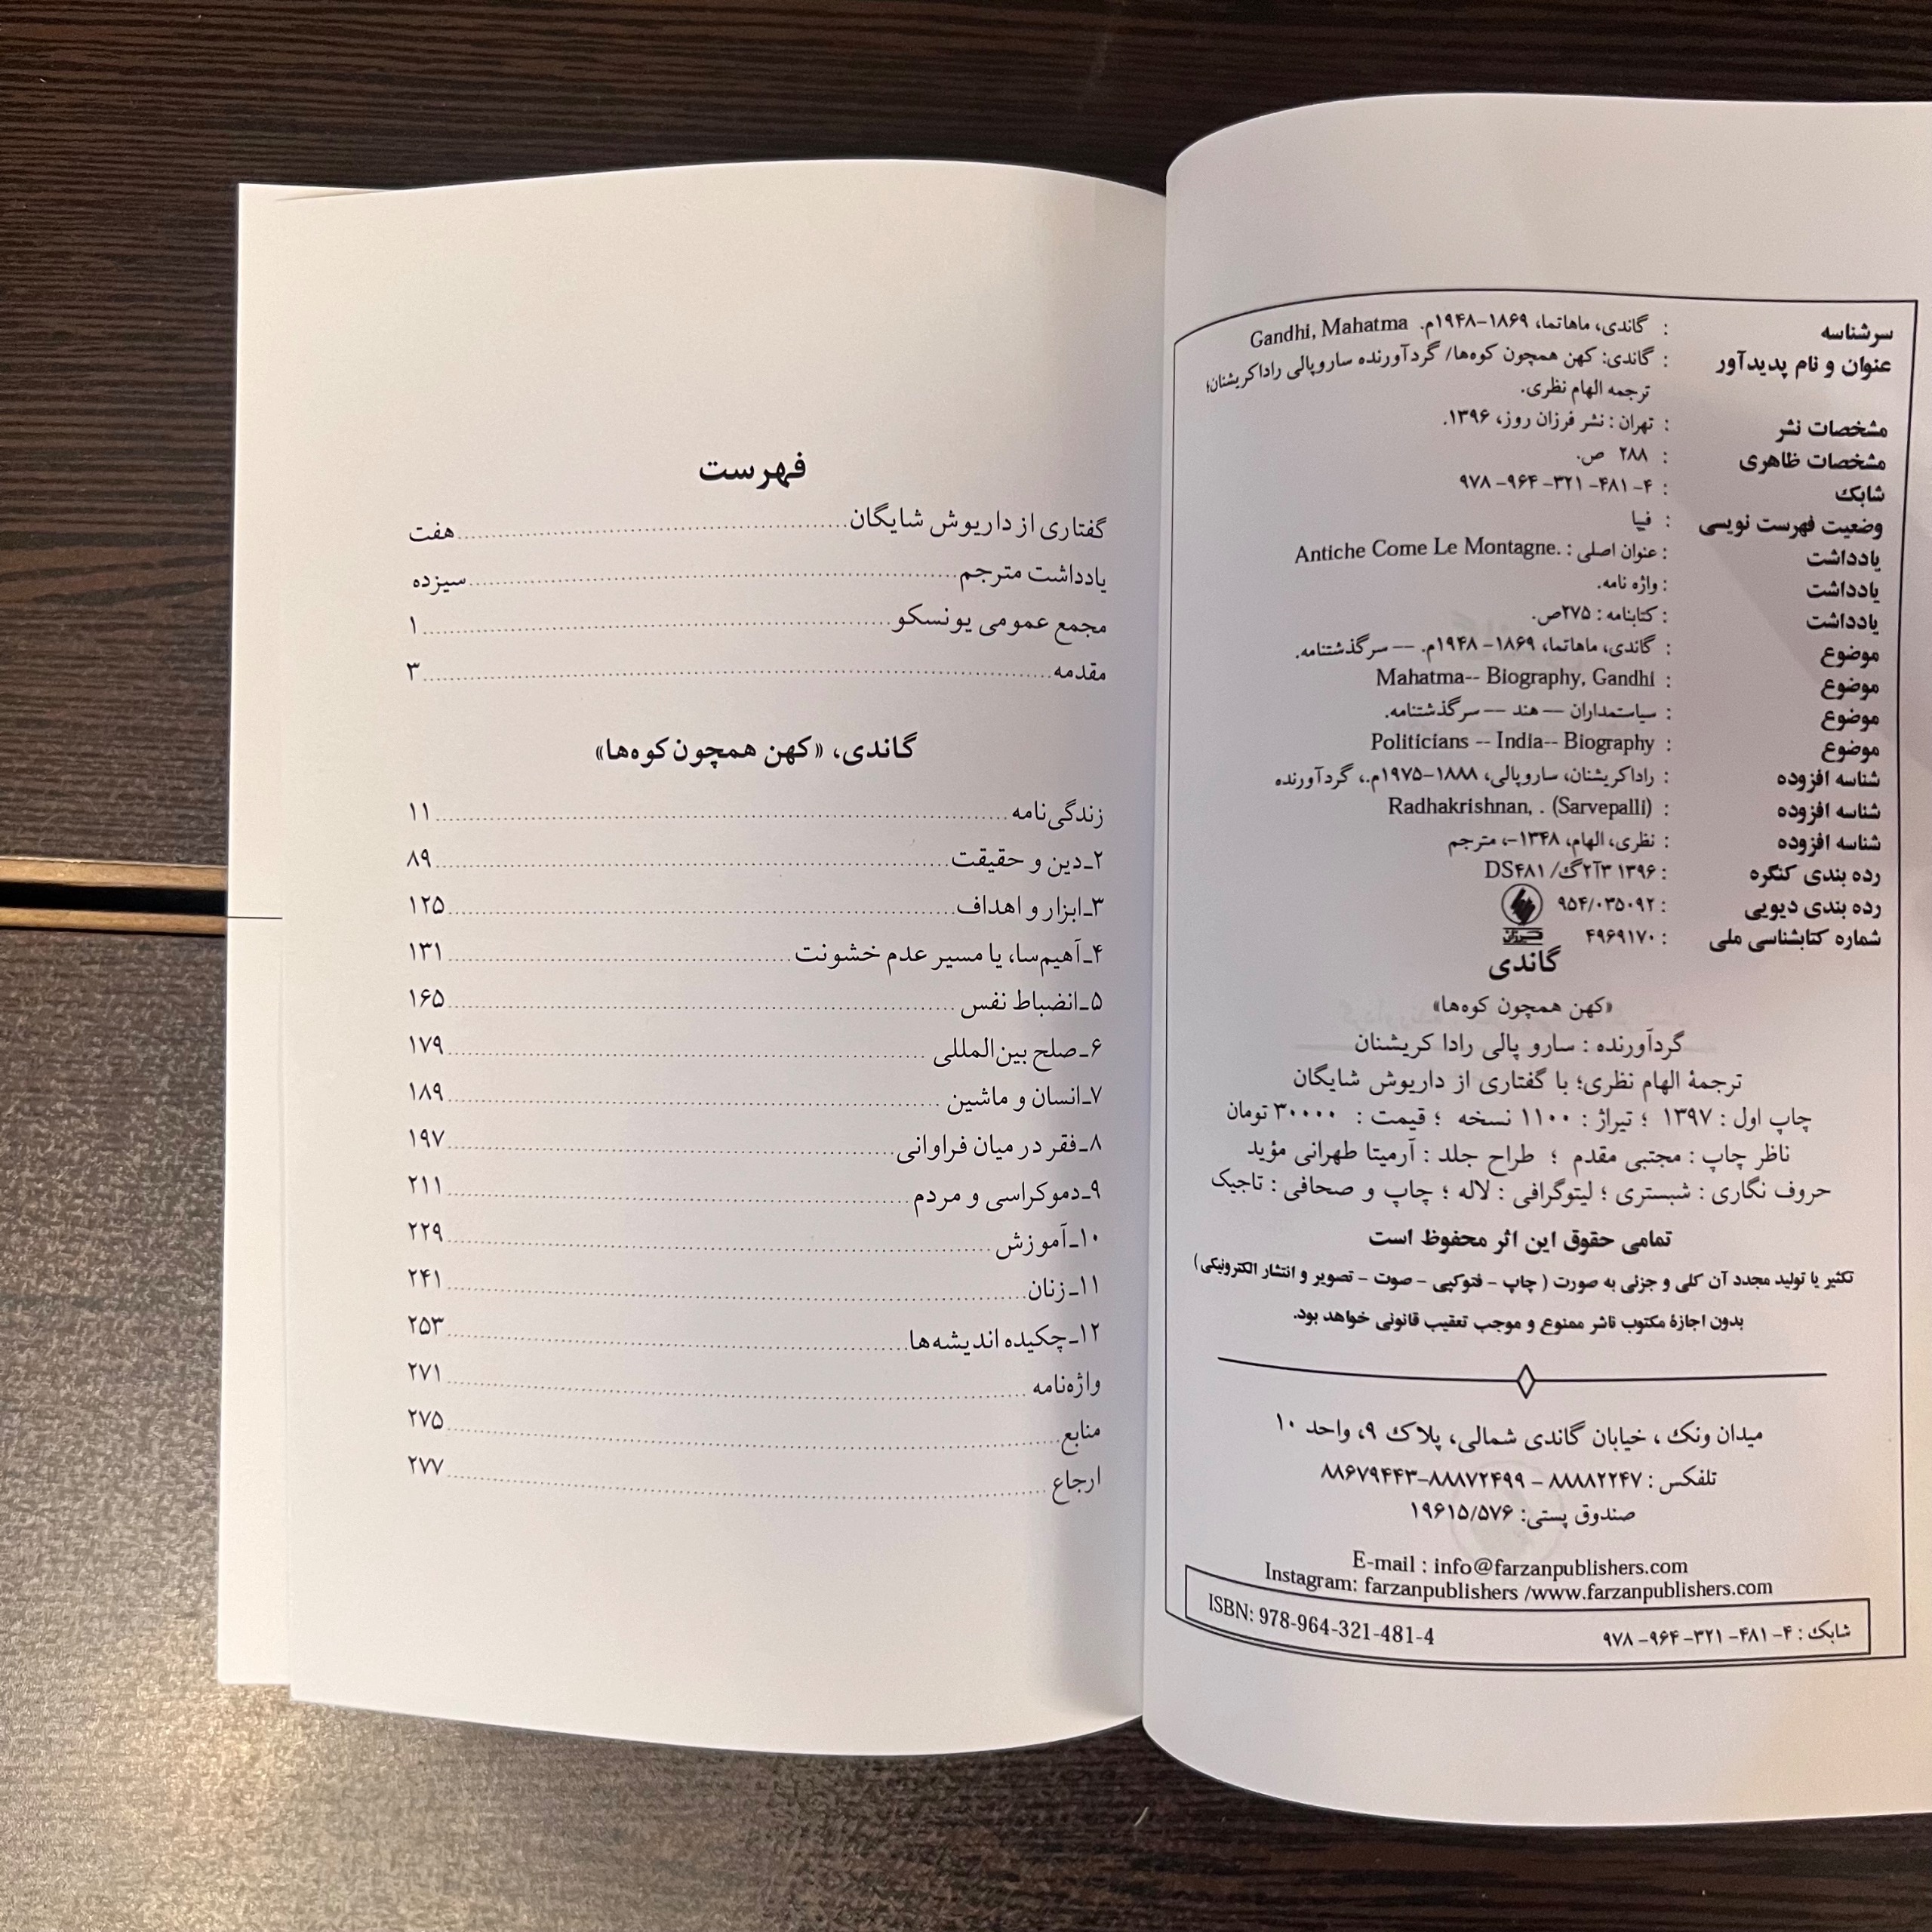 سرشناسه : گاندی، ماهاتما، ۱۸۶۹-۱۹۴۸م. Gandhi, Mahatma
عنوان و نام پدیدآور : گاندی: کهن همچون کوه‌ها/ گردآورنده ساروپالی راداکریشنان؛
ترجمه الهام نظری.
مشخصات نشر : تهران : نشر فرزان روز، ۱۳۹۶.
مشخصات ظاهری : ۲۸۸ ص.
شابک : ۴-۴۸۱-۳۲۱-۹۶۴-۹۷۸
وضعیت فهرست نویسی : فیپا
یادداشت : عنوان اصلی : Antiche Come Le Montagne.
یادداشت : واژه نامه.
یادداشت : کتابنامه : ۲۷۵ص.
موضوع : گاندی، ماهاتما، ۱۸۶۹- ۱۹۴۸م. -- سرگذشتنامه.
موضوع : Mahatma-- Biography, Gandhi
موضوع : سیاستمداران -- هند -- سرگذشتنامه.
موضوع : Politicians -- India-- Biography
شناسه افزوده : راداکریشنان، ساروپالی، ۱۸۸۸-۱۹۷۵م.، گردآورنده
شناسه افزوده : Radhakrishnan, . (Sarvepalli)
شناسه افزوده : نظری، الهام، ۱۳۴۸-، مترجم
رده بندی کنگره : ۱۳۹۶ ۳آ۲گ/ DS۴۸۱
رده بندی دیویی : ۹۵۴/۰۳۵۰۹۲
شماره کتابشناسی ملی : ۴۹۶۹۱۷۰
فرزان
گاندی
«کهن همچون کوه‌ها»
گردآورنده : سارو پالی رادا کریشنان
ترجمهٔ الهام نظری؛ با گفتاری از داریوش شایگان
چاپ اول : ۱۳۹۷ ؛ تیراژ : ۱۱۰۰ نسخه ؛ قیمت : ۳۰۰۰۰ تومان
ناظر چاپ : مجتبی مقدم ؛ طراح جلد : آرمیتا طهرانی مؤید
حروف نگاری : شبستری ؛ لیتوگرافی : لاله ؛ چاپ و صحافی : تاجیک
تمامی حقوق این اثر محفوظ است
تکثیر یا تولید مجدد آن کلی و جزئی به صورت ( چاپ - فتوکپی - صوت - تصویر و انتشار الکترونیکی)
بدون اجازهٔ مکتوب ناشر ممنوع و موجب تعقیب قانونی خواهد بود.
میدان ونک ، خیابان گاندی شمالی، پلاک ۹، واحد ۱۰
تلفکس : ۸۸۸۸۲۲۴۷ - ۸۸۸۷۲۴۹۹-۸۸۶۷۹۴۴۳
صندوق پستی: ۱۹۶۱۵/۵۷۶
E-mail : info@farzanpublishers.com
Instagram: farzanpublishers /www.farzanpublishers.com
شابک : ۴-۴۸۱-۳۲۱-۹۶۴-۹۷۸ ISBN: 978-964-321-481-4
فهرست
گفتاری از داریوش شایگان هفت
یادداشت مترجم سیزده
مجمع عمومی یونسکو ۱
مقدمه ۳
گاندی، «کهن همچون کوه‌ها»
زندگی‌نامه ۱۱
۲ـ دین و حقیقت ۸۹
۳ـ ابزار و اهداف ۱۲۵
۴ـ آهیم‌سا، یا مسیر عدم خشونت ۱۳۱
۵ـ انضباط نفس ۱۶۵
۶ـ صلح بین‌المللی ۱۷۹
۷ـ انسان و ماشین ۱۸۹
۸ـ فقر در میان فراوانی ۱۹۷
۹ـ دموکراسی و مردم ۲۱۱
۱۰ـ آموزش ۲۲۹
۱۱ـ زنان ۲۴۱
۱۲ـ چکیده اندیشه‌ها ۲۵۳
واژه‌نامه ۲۷۱
منابع ۲۷۵
ارجاع ۲۷۷